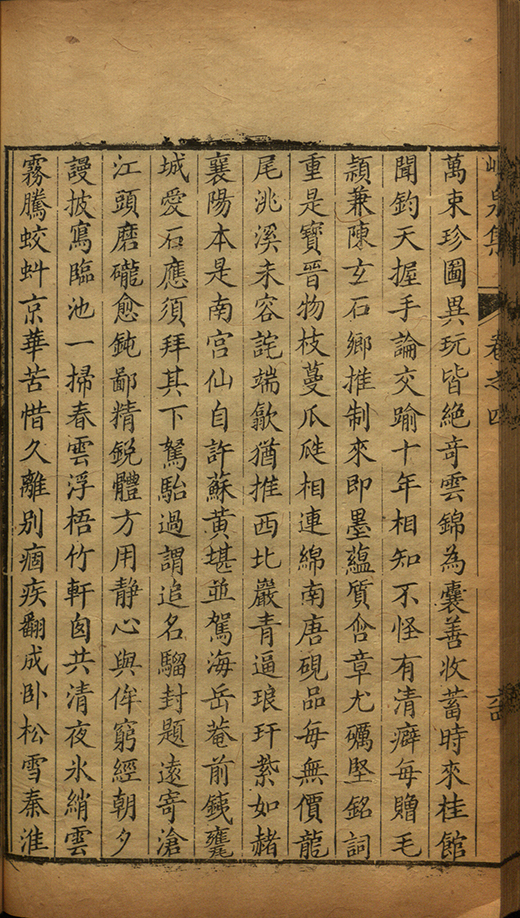 峴泉集　卷之四
萬束珍圖異玩皆絕奇雲錦為囊善收蓄時來桂館
聞鈞天握手論交踰十年相知不怪有清癖每贈毛
穎兼陳玄石鄉推制來即墨蘊質含章尤礪堅銘詞
重是寶晉物枝蔓瓜瓞相連綿南唐硯品每無價龍
尾洮溪未容詫端歙猶推西比巖青逼琅玕紫如赭
襄陽本是南宮仙自許蘇黃堪並駕海岳菴前銕甕
城愛石應須拜其下駑駘過謂追名騮封題遠寄滄
江頭磨礲愈鈍鄙精銳體方用靜心與侔窮經朝夕
謾披寫臨池一掃春雲浮梧竹軒囱共清夜氷綃雲
霧騰蛟蚪京華苦惜久離別痼疾翻成臥松雪秦淮